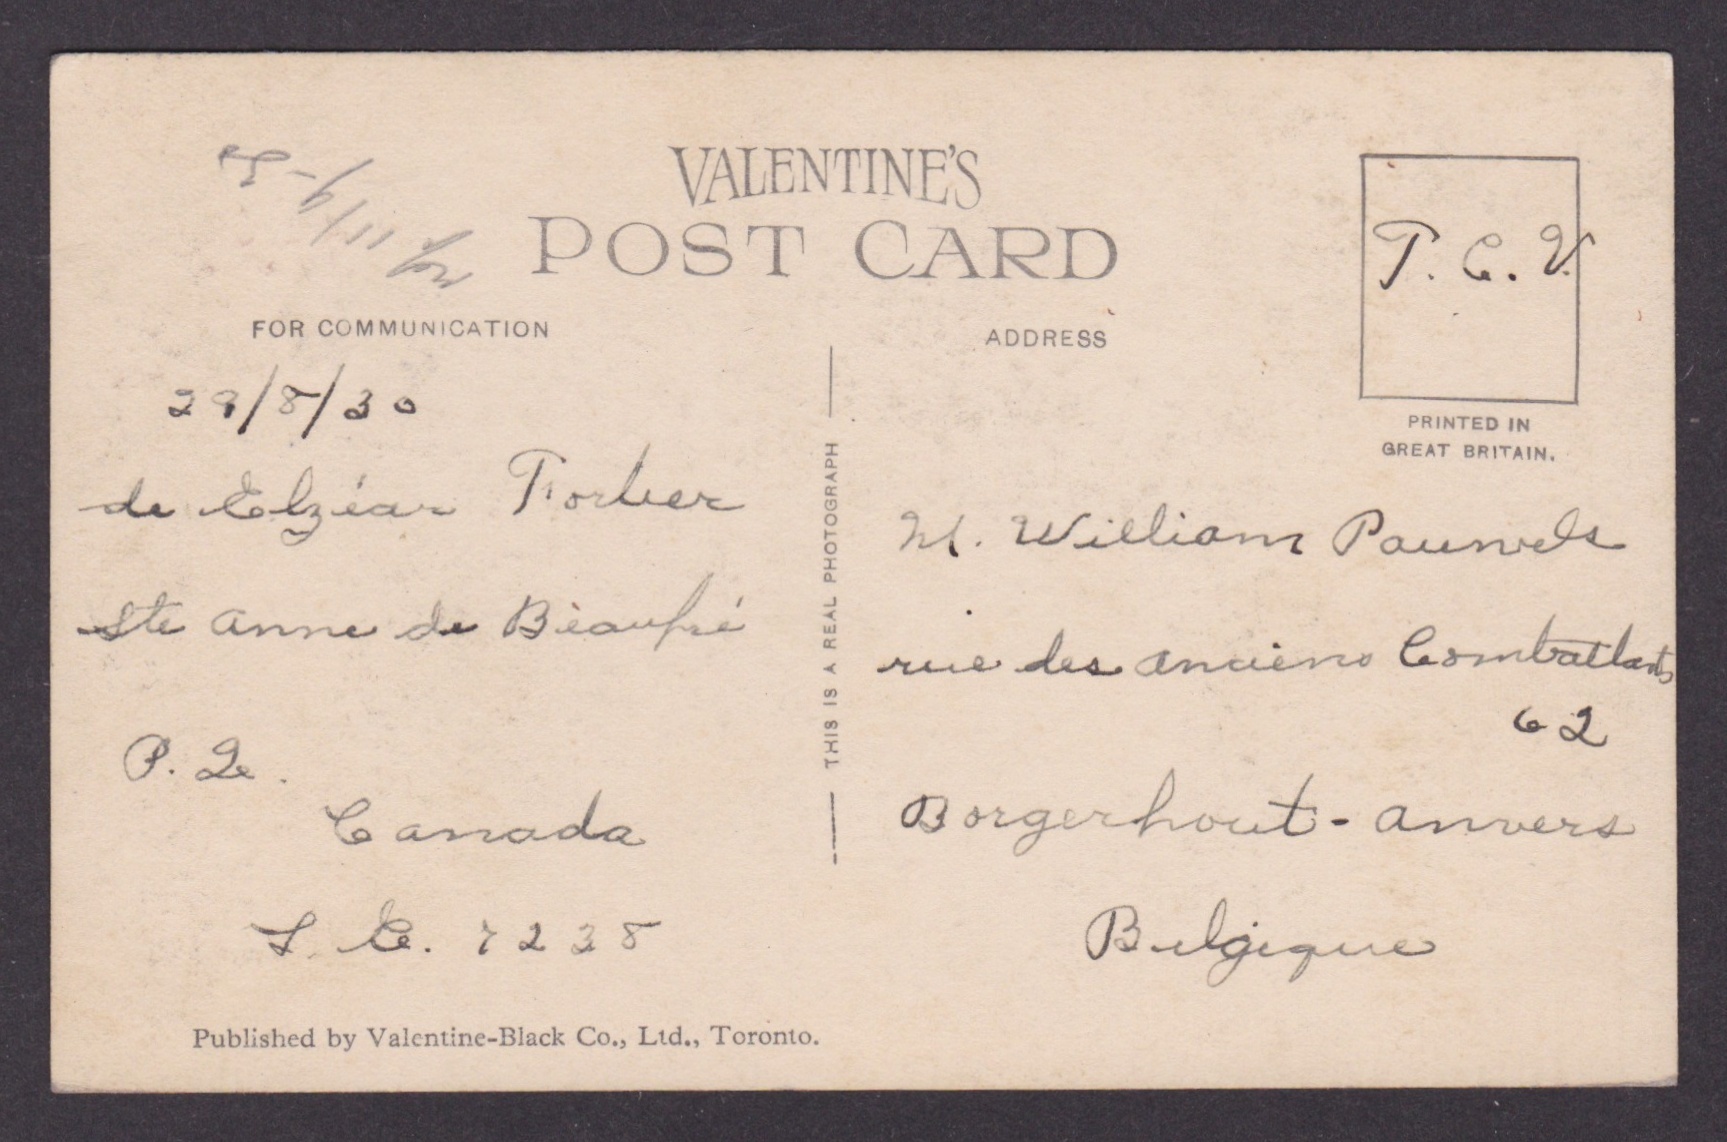 VALENTINE'S
POST CARD
T. C. V.
FOR COMMUNICATION
ADDRESS
PRINTED IN
GREAT BRITAIN.
29/8/30
de Elzéar Fortier
Ste Anne de Beaupré
P. Q.
Canada
S. C. 7238
THIS IS A REAL PHOTOGRAPH
M. William Pauwels
rue des anciens Combattants
62
Borgerhout - Anvers
Belgique
Published by Valentine-Black Co., Ltd., Toronto.